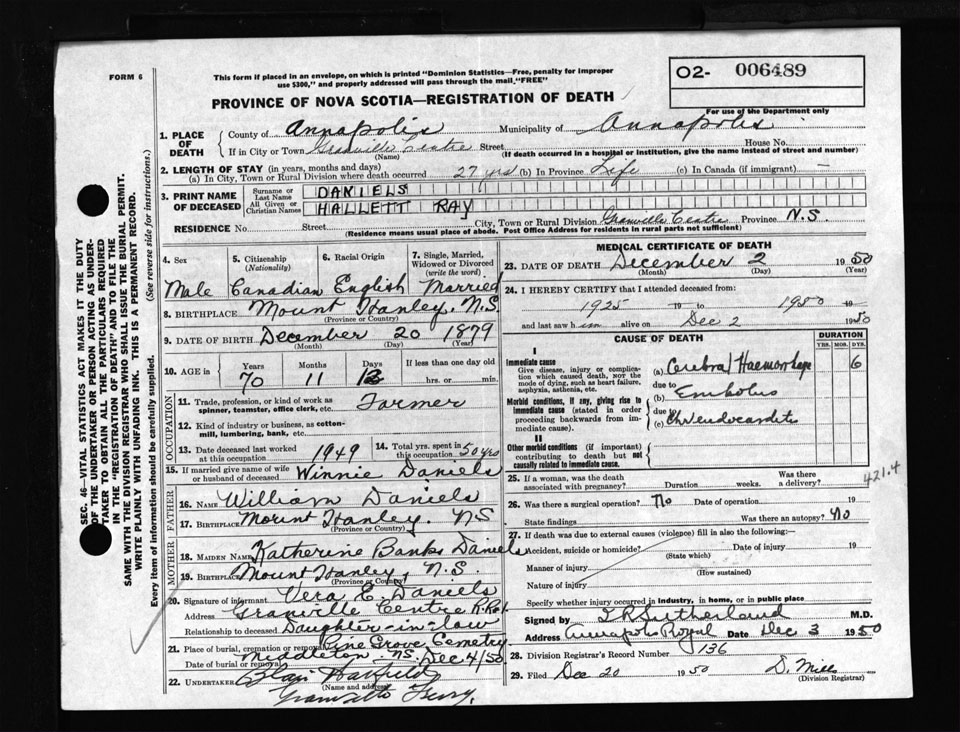 FORM 6
This form if placed in an envelope, on which is printed "Dominion Statistics—Free, penalty for improper
use $300," and properly addressed will pass through the mail, "FREE"
O2- 006489
PROVINCE OF NOVA SCOTIA—REGISTRATION OF DEATH
For use of the Department only
1. PLACE OF DEATH
County of Annapolis Municipality of Annapolis
If in City or Town Granville Centre Street House No.
(Name) (If death occurred in a hospital or institution, give the name instead of street and number)
2. LENGTH OF STAY (in years, months and days)
(a) In City, Town or Rural Division where death occurred 27 yrs (b) In Province Life (c) In Canada (if immigrant) —
3. PRINT NAME OF DECEASED
Surname or Last Name DANIELS
All Given or Christian Names HALLETT RAY
RESIDENCE No. Street City, Town or Rural Division Granville Centre Province N.S.
(Residence means usual place of abode. Post Office Address for residents in rural parts not sufficient)
4. Sex
5. Citizenship (Nationality)
6. Racial Origin
7. Single, Married, Widowed or Divorced (write the word)
Male Canadian English Married
8. BIRTHPLACE Mount Hanley, N.S.
(Province or Country)
9. DATE OF BIRTH December 20 1879
(Month) (Day) (Year)
10. AGE in Years Months Days If less than one day old
70 11 12 hrs. or min.
OCCUPATION
11. Trade, profession or kind of work as spinner, teamster, office clerk, etc. Farmer
12. Kind of industry or business, as cotton-mill, lumbering, bank, etc.
13. Date deceased last worked at this occupation 1949
14. Total yrs. spent in this occupation 50 yrs
15. If married give name of wife or husband of deceased Winnie Daniels
FATHER
16. Name William Daniels
17. Birthplace Mount Hanley, NS
(Province or Country)
MOTHER
18. Maiden Name Katherine Banks Daniels
19. Birthplace Mount Hanley, N.S.
(Province or Country)
20. Signature of informant Vera E. Daniels
Address Granville Centre
Relationship to deceased Daughter-in-law
21. Place of burial, cremation or removal Pine Grove Cemetery
Middleton NS. Dec 4/50
Date of burial or removal
22. UNDERTAKER
(Name and address)
Granville Ferry.
MEDICAL CERTIFICATE OF DEATH
23. DATE OF DEATH December 2 1950
(Month) (Day) (Year)
24. I HEREBY CERTIFY that I attended deceased from:
1925 19 to 1950 19
and last saw him alive on Dec 2 1950
CAUSE OF DEATH
DURATION
YRS. MOS. DYS.
I
Immediate cause
Give disease, injury or complication which caused death, NOT the mode of dying, such as heart failure, asphyxia, asthenia, etc.
(a) Cerebral Haemorrhage 6
due to
Morbid conditions, if any, giving rise to immediate cause (stated in order proceeding backwards from immediate cause).
(b) Embolus
due to
(c) Chr endocarditis
II
Other morbid conditions (if important) contributing to death but not causally related to immediate cause.
25. If a woman, was the death associated with pregnancy? Duration weeks. Was there a delivery?
421.4
26. Was there a surgical operation? No Date of operation 19
State findings Was there an autopsy? No
27. If death was due to external causes (violence) fill in also the following:—
Accident, suicide or homicide? Date of injury 19
(State which)
Manner of injury
(How sustained)
Nature of injury
Specify whether injury occurred in Industry, in home, or in public place
Signed by Sutherland M.D.
Address Annapolis Royal Date Dec 3 1950
28. Division Registrar's Record Number 136
29. Filed Dec 20 1950 D. Mills
(Division Registrar)
SEC. 46—VITAL STATISTICS ACT MAKES IT THE DUTY
OF THE UNDERTAKER OR PERSON ACTING AS UNDER-
TAKER TO OBTAIN ALL THE PARTICULARS REQUIRED
IN THE "REGISTRATION OF DEATH" AND TO FILE THE
SAME WITH THE DIVISION REGISTRAR WHO SHALL ISSUE THE BURIAL PERMIT.
WRITE PLAINLY WITH UNFADING INK. THIS IS A PERMANENT RECORD.
Every item of information should be carefully supplied. (See reverse side for instructions.)